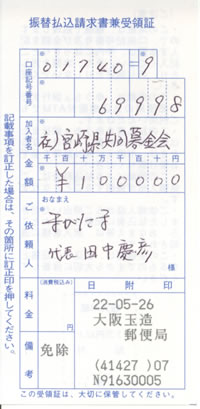 振替払込請求書兼受領証
口座記号番号
01740=9
69998
加入者名
社)宮崎県共同募金会
金額
千百十万千百十円
¥100000
ご依頼人
おなまえ
代表 田中慶彦
様
料金
(消費税込み)
円
日附印
22-05-26
大阪玉造
郵便局
(41427)07
N91630005
備考
免除
記載事項を訂正した場合は、その箇所に訂正印を押してください。
この受領証は、大切に保管してください。